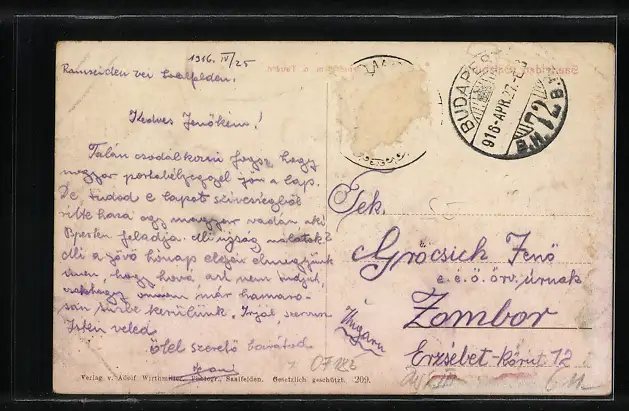 1916. IV/25
Ramseiden bei Saalfelden.
Kedves Jenőkém!
Talán csodálkozni fogsz, hogy
magyar postabélyeggel jön a lap.
De, tudod e lapot szívességből
vitte haza egy magyar vadász aki
Bpesten feladja. Mi újság nálatok?
Mi a jövő hónap elején elmegyünk
innen, hogy hová, azt nem tudjuk,
már hamaro-
san kerülünk. Írjál,
Isten veled
Ölel szerető barátod
Tek.
Grőcsich Jenő
e.é.ö. örv. úrnak
Zombor
Erzsébet-körút 12
Ungarn
BUDAPEST 72
916-APR. 27.
Verlag v. Adolf Wirthmiller, Photogr., Saalfelden. Gesetzlich geschützt. 209.